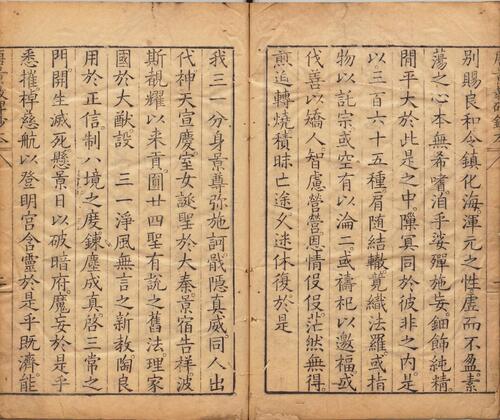 別賜良和令鎮化海渾元之性虛而不盈素
蕩之心本無希嗜洎乎娑殫施妄鈿飾純精
閒平大於此是之中隟冥同於彼非之内是
以三百六十五種肩隨結轍竟織法羅或指
物以託宗或空有以淪二或禱祀以邀福或
伐善以矯人智慮營營恩情伇伇茫然無得
煎迫轉燒積昧亡途久迷休復於是
我三一分身景尊弥施訶戢隱真威同人出
代神天宣慶室女誕聖於大秦景宿告祥波
斯覩耀以來貢圓廿四聖有說之舊法理家
國於大猷設 三一淨風無言之新教陶良
用於正信制八境之度鍊塵成真啓三常之
門開生滅死懸景日以破暗府魔妄於是乎
悉摧棹慈航以登明宮含靈於是乎既濟能